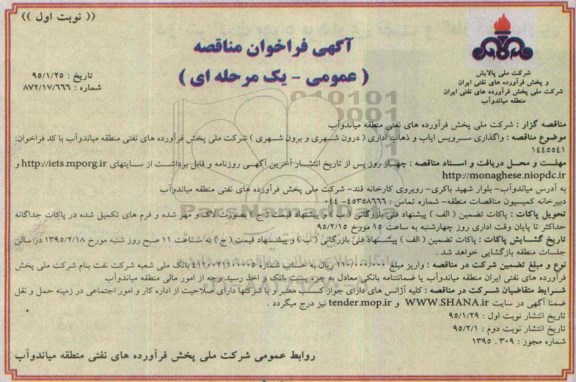 (( نوبت اول ))
آگهی فراخوان مناقصه
( عمومی - یک مرحله ای )
شرکت ملی پالایش
و پخش فرآورده های نفتی ایران
شرکت ملی پخش فرآورده های نفتی ایران
منطقه میاندوآب
تاریخ : ۹۵/۱/۲۵
شماره : ۸۷۲/۱۷/۶۶۶
مناقصه گزار : شرکت ملی پخش فرآورده های نفتی منطقه میاندوآب
موضوع مناقصه : واگذاری سرویس ایاب و ذهاب اداری ( درون شهری و برون شهری ) شرکت ملی پخش فرآورده های نفتی منطقه میاندوآب با کد فراخوان:
۱۴۴۵۵۴۱
مهلت و محل دریافت و اسناد مناقصه : چهار روز پس از تاریخ انتشار آخرین آگهی روزنامه و قابل برداشت از سایتهای http://iets.mporg.ir و
http://monaghese.niopdc.ir
به آدرس میاندوآب- بلوار شهید باکری- روبروی کارخانه قند- شرکت ملی پخش فرآورده های نفتی منطقه میاندوآب
دبیرخانه کمیسیون مناقصات منطقه- شماره تماس : ۴۵۳۵۸۶۶۶- ۰۴۴
تحویل پاکات : پاکات تضمین ( الف ) پیشنهاد فنی بازرگانی ( ب ) و پیشنهاد قیمت ( ج ) بصورت لاک و مهر شده و فرم های تکمیل شده در پاکات جداگانه
حداکثر تا پایان وقت اداری روز چهارشنبه به ساعت ۱۵ مورخ ۹۵/۲/۱۵
تاریخ گشایش پاکات : پاکات تضمین ( الف ) پیشنهاد فنی بازرگانی ( ب ) و پیشنهاد قیمت ( ج ) به ساعت ۱۱ صبح روز شنبه مورخ ۱۳۹۵/۲/۱۸ در سالن
جلسات منطقه بازگشایی خواهد شد .
نوع و مبلغ تضمین شرکت در مناقصه : واریز مبلغ ریال به حساب بانک ملی شعبه شرکت نفت بنام شرکت ملی پخش
فرآورده های نفتی ایران منطقه میاندوآب یا ضمانتنامه بانکی معادل به جزء پست بانک و اخذ رسید وجه از امور مالی منطقه میاندوآب
شرایط متقاضیان شرکت در مناقصه : کلیه آژانس های دارای جواز کسب معتبر و یا شرکتها دارای صلاحیت از اداره کار و امور اجتماعی در زمینه حمل و نقل
ضمنا آگهی در سایت WWW.SHANA.ir و tender.mop.ir نیز درج میگردد .
تاریخ انتشار نوبت اول : ۹۵/۱/۲۹
تاریخ انتشار نوبت دوم : ۹۵/۲/۱
شماره مجوز : ۳۰۹ . ۱۳۹۵
روابط عمومی شرکت ملی پخش فرآورده های نفتی منطقه میاندوآب